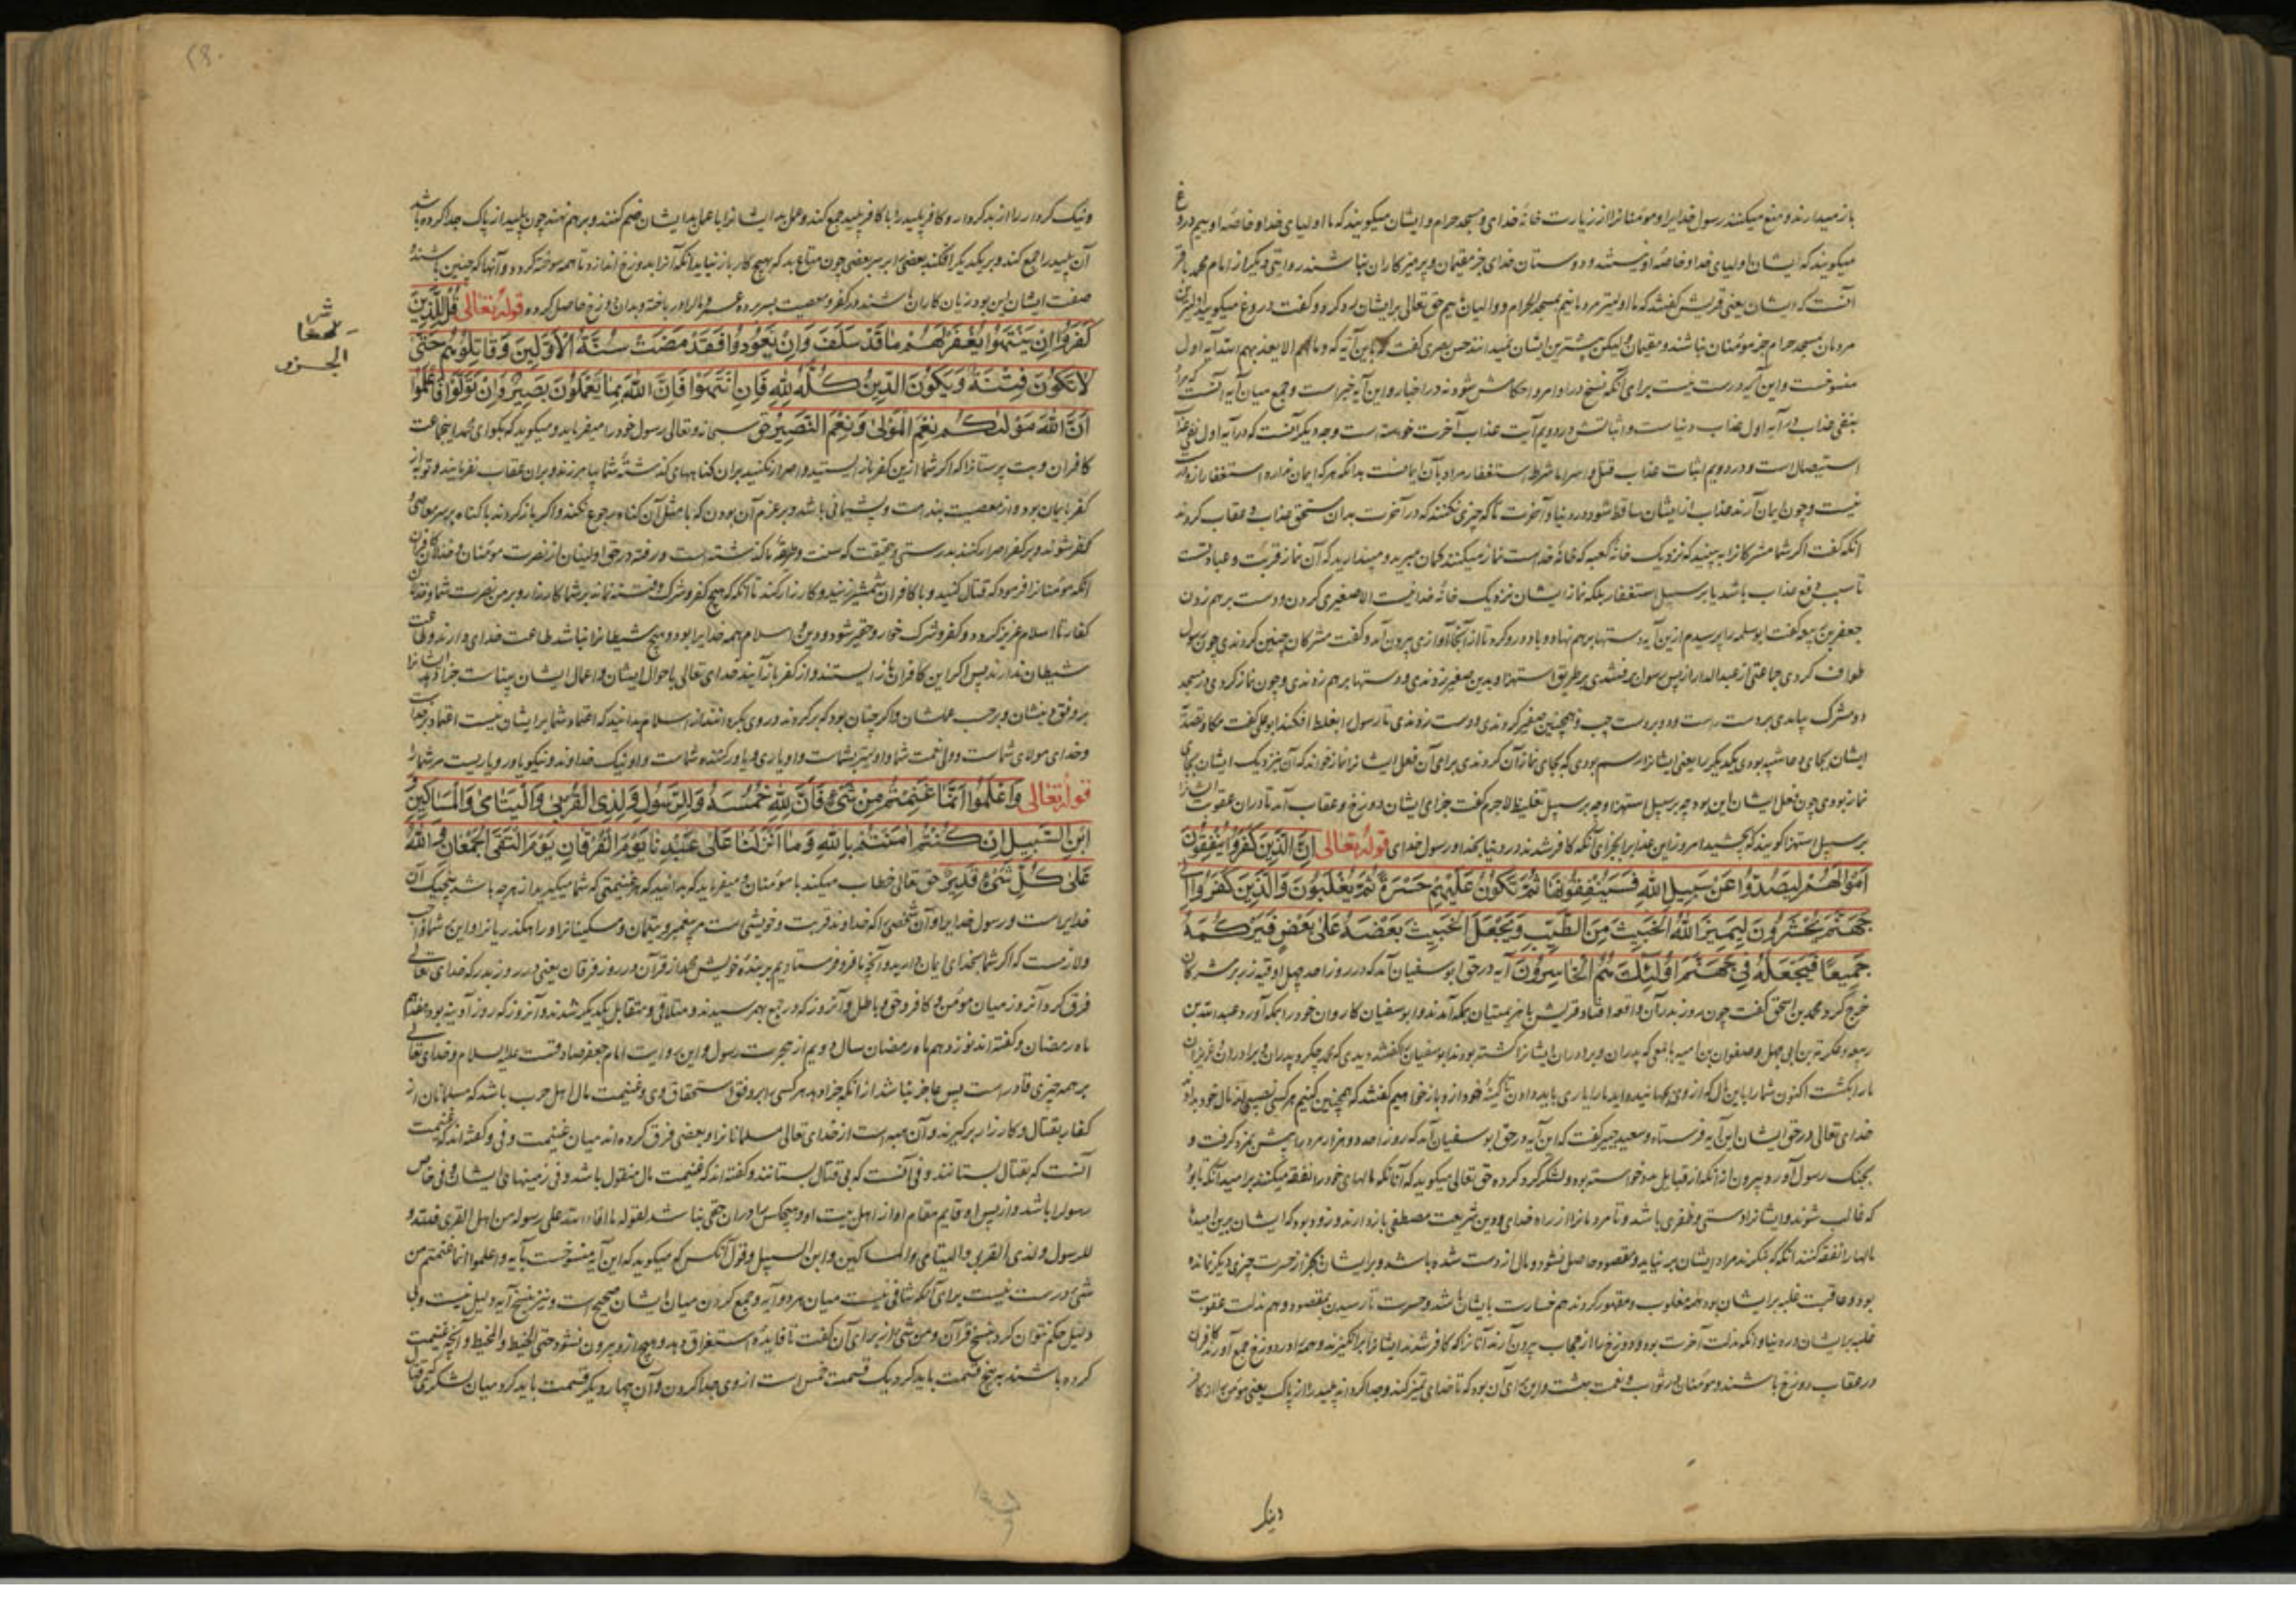 باز میدارند و منع میکنند رسول خدایرا و مؤمنانرا از زیارت خانهٔ خدای و مسجد حرام و ایشان میکویند که ما اولیای خدا و خاصهٔ اوییم دروغ
میکویند که ایشان اولیای خدا و خاصهٔ او نیستند و دوستان خدای جز متقیان و پرهیزکاران نباشند روایتی دیکر از امام محمد باقر
آنست که ایشان یعنی قریش کفتند که ما اولیتر مردمانیم بمسجد الحرام و والیان آنیم حق تعالی بر ایشان رد کرد و کفت دروغ میکویید
مردمان مسجد حرام جز مؤمنان نباشند و متقیان ولیکن بیشترین ایشان نمیدانند حسن بصری کفت که باین آیه که و مالهم الا یعذبهم الله آیه اول
منسوخست و این درست نیست برای آنکه نسخ در اوامر و احکامش شود نه در اخبار و این آیه خبر است و جمع میان آیه آنست که مراد
بنفی عذاب در آیه اول عذاب دنیاست و اثباتش در دویم آیت عذاب آخرت خواسته است و وجه دیکر آنست که در آیه اول نفی عذاب
استیصال است و در دویم اثبات عذاب قتل و اسر اما شرط استغفار مراد بآن ایمانست بدانکه هر که ایمان ندارد استغفار ازو درست
نیست و چون ایمان آرند عذاب از ایشان ساقط شود در دنیا و آخرت تا که چیزی نکنند که در آخرت بدان مستحق عذاب و عقاب کردند
آنکه کفت اکر شما مشرکانرا به بینید که نزدیک خانهٔ کعبه که خانهٔ خداست نماز میکنند کمان مبرید و مپندارید که آن نماز قربت و عبادتست
تا سبب دفع عذاب باشد یا بر سبیل استغفار بلکه نماز ایشان نزدیک خانهٔ خدا نیست الا صفیری کردن و دست بر هم زدن
جعفر بن ربیعه کفت ابو سلمه را پرسیدم ازین آیه دستها برهم نهاد و باد درو کرد تا از آنجا آوازی بیرون آمد و کفت مشرکان چنین کردندی چون رسول
طواف کردی جماعتی از عبد الدار از پس رسول برفتندی بر طریق استهزا و بدین صفیر زدندی و دستها برهم زدندی و چون نماز کردی در مسجد
دو مشرک بیامدی بر دست راست و دو بر دست چپ و همچنین صفیر کردندی و دست زدندی تا رسول را بغلط افکنند ابو علی کفت مکا و تصدیه
نماز نبودی چون فعل ایشان این بود چه بر سبیل استهزا و چه بر سبیل تغلیظ لاجرم کفت جزای ایشان دوزخ و عقاب آمد تا در آن عقوبت ایشانرا
بر سبیل استهزا کویند که بچشید امروز این عذاب را بجزای آنکه کافر شدند در دنیا بخدا و رسول خدای قوله تعالی اِنَّ الَّذینَ کَفَرُوا یُنْفِقُونَ
اَمْوالَهُمْ لِیَصُدُّوا عَنْ سَبیلِ اللّهِ فَسَیُنْفِقُونَها ثُمَّ تَکُونُ عَلَیْهِمْ حَسْرَةً ثُمَّ یُغْلَبُونَ وَالَّذینَ کَفَرُوا اِلی
جَهَنَّمَ یُحْشَرُونَ لِیَمیزَ اللّهُ الْخَبیثَ مِنَ الطَّیِّبِ وَیَجْعَلَ الْخَبیثَ بَعْضَهُ عَلی بَعْضٍ فَیَرْکُمَهُ
جَمیعًا فَیَجْعَلَهُ فی جَهَنَّمَ اُولئِکَ هُمُ الْخاسِرُونَ آیه در حق ابو سفیان آمد که در روز احد چهل اوقیه زر بر مشرکان
خرج کرد محمد بن اسحق کفت چون روز بدر آن واقعه افتاد و قریش با هزیمتیان بمکه آمدند و ابو سفیان کاروان خود را بمکه آورد عبد الله بن
ربیعه و عکرمة بن ابی جهل و صفوان بن امیه با جمعی که پدران و برادران ایشانرا کشته بودند ابو سفیان را کفتند دیدی که محمد چکرد پدران و برادران و عزیزان
خدای تعالی در حق ایشان این آیه فرستاد و سعید جبیر کفت که این آیه در حق ابو سفیان آمد که روز احد دو هزار مرد را بمزد کرفت و
بجنک رسول آورد بیرون از آنکه از قبایل مدد خواسته بود و لشکر کرد کرده حق تعالی میکوید که آنانکه مالهای خود را نفقه میکنند بر امید آنکه تا بود
که غالب شوند و ایشانرا دستی و ظفری باشد و تا مردمانرا از راه خدای و دین و شریعت مصطفی باز دارند و زود بود که ایشان برین امید
مالها را نفقه کنند آنکه که بنکرند مراد ایشان بر نیاید و مقصود حاصل نشود و مال از دست شده باشد و بر ایشان بجز از حسرت چیزی دیکر نمانده
بود و عاقبت غلبه بر ایشان بود همه مغلوب و مقهور کردند هم خسارت بایشان باشد و حسرت نارسیدن بمقصود و هم مذلت عقوبت
در عقاب دوزخ باشند و مؤمنان در ثواب و نعمت بهشت و این برای آن بود که تا خدای تمیز کند و جدا کرداند پلید را از پاک یعنی مؤمن را از کافر
ونیک
و نیک کردار را از بد کردار و کافر پلید را با کافر پلید جمع کند و عمل بد ایشانرا با عمل بد ایشان ضم کنند و بر هم نهند چون پلید از پاک جدا کرده باشد
آن پلید را جمع کند و بر یکدیکر افکند بعضی را بر سر بعضی چون متاع بد که بهیچ کار باز نیاید آنکه آنرا بدوزخ اندازد تا همه سوخته کردد و آنها که چنین باشند
صفت ایشان این بود زیان کاران باشند در کفر و معصیت بسر برده عمر و مال را در باخته و بدان دوزخ حاصل کرده قوله تعالی قُلْ لِلَّذینَ
کَفَرُوا اِنْ یَنْتَهُوا یُغْفَرْ لَهُمْ ما قَدْ سَلَفَ وَاِنْ یَعُودُوا فَقَدْ مَضَتْ سُنَّةُ الْاَوَّلینَ وَقاتِلُوهُمْ حَتّی
لا تَکُونَ فِتْنَةٌ وَیَکُونَ الدّینُ کُلُّهُ لِلّهِ فَاِنِ انْتَهَوْا فَاِنَّ اللّهَ بِما یَعْمَلُونَ بَصیرٌ وَاِنْ تَوَلَّوْا فَاعْلَمُوا
اَنَّ اللّهَ مَوْلیکُمْ نِعْمَ الْمَوْلی وَنِعْمَ النَّصیرُ حق سبحانه و تعالی رسول خود را میفرماید و میکوید که بکو ای محمد این جماعت
کافران و بت پرستانرا که اکر شما ازین کفر باز ایستید و اصرار نکنید بر آن کناههای کذشتهٔ شما بیامرزند و بر آن عقاب نفرمایند و توبه از
کفر بایمان بود و از معصیت بندامت و پشیمانی باشد و بر عزم آن بودن که با مثل آن کناه رجوع نکنند و اکر باز کردند با کناه بر سر معاصی
کفر شوند و بر کفر اصرار کنند بدرستی و حقیقت که سنت و طریقهٔ ما کذشته است و رفته در حق اولینان از نصرت مؤمنان و خذلان کافران
آنکه مؤمنانرا فرمود که قتال کنید و با کافران شمشیر زنید و کارزار کنند تا آنکه که هیچ کفر و شرک و فتنه نماند بر شما کارزار و بر من نصرت شما و خذلان
کفار تا اسلام عزیز کردد و کفر و شرک خوار و حقیر شود و دین و اسلام همه خدایرا بود و هیچ شیطانرا نباشد طاعت خدای دارند و طاعت
شیطان ندارند پس اکر این کافران باز ایستند و از کفر باز آیند خدای تعالی باحوال ایشان و اعمال ایشان بیناست جزا دهد ایشانرا
و خدای مولای شماست و ولی نعمت شما و اولیتر بشماست و او یاری و یاور کننده شماست و او نیک خداوند و نیکو یاور و یاریست مر شما را
قوله تعالی وَاعْلَمُوا اَنَّما غَنِمْتُمْ مِنْ شَیْءٍ فَاَنَّ لِلّهِ خُمُسَهُ وَلِلرَّسُولِ وَلِذِی الْقُرْبی وَالْیَتامی وَالْمَساکینِ وَ
ابْنِ السَّبیلِ اِنْ کُنْتُمْ امَنْتُمْ بِاللّهِ وَما اَنْزَلْنا عَلی عَبْدِنا یَوْمَ الْفُرْقانِ یَوْمَ الْتَقَی الْجَمْعانِ وَاللّهُ
عَلی کُلِّ شَیْءٍ قَدیرٌ حق تعالی خطاب میکند با مؤمنان و میفرماید که بدانید که هر غنیمتی که شما میکیرید از هر چه باشد پنجیک آن
خدایراست و رسول خدایرا و آن شخصی را که خداوند قربت و خویشی است مر پیغمبر و یتیمان و مسکینانرا و راهکذریانرا و این بر شما واجب
و لازمست که اکر شما بخدای ایمان دارید و آنچه ما فرو فرستادیم بر بندهٔ خویش محمد از قرآن در روز فرقان یعنی در روز بدر که خدای تعالی
فرق کرد آنروز میان مؤمن و کافر و حق و باطل و آنروز که دو جمع بهم رسیدند و متلاقی و متقابل یکدیکر شدند و آنروز که روز آدینه بود هفدهم
ماه رمضان و کفته اند نوزدهم ماه رمضان سال دویم از هجرت رسول و این روایت امام جعفر صادقست علیه السلام و خدای تعالی
بر همه چیزی قادر است پس عاجز نباشد از آنکه جزا دهد هر کسی را بر وفق استحقاق وی و غنیمت مال اهل حرب باشد که مسلمانان از
کفار بقتال و کارزار برکیرند و آن هبه است از خدای تعالی مسلمانانرا و بعضی فرق کرده اند میان غنیمت و فی و کفته اند که غنیمت
آنست که بقتال بستانند و فی آنست که بی قتال بستانند و کفته اند که غنیمت مال منقول باشد و فی زمینهای ایشان و فی خاص
رسول را باشد و از پس او قایم مقام او را از اهل بیت او و هیچکس را در آن حقی نباشد لقوله ما افاء الله علی رسوله من اهل القری فلله و
للرسول و لذی القربی و الیتامی و المساکین و ابن السبیل و قول آنکس که میکوید که این آیه منسوخست بآیه و اعلموا انما غنمتم من
شی درست نیست برای آنکه تنافی نیست میان هر دو آیه و جمع کردن میان ایشان صحیح است و نیز نسخ آیه را دلیل نیست و بی
دلیل حکم نتوان کرد بنسخ قرآن و من شی از برای آن کفت تا فایدهٔ استغراق دهد و هیچ ازو بیرون نشود حتی الخیط و المخیط و آنچه غنیمت
کرده باشند به پنج قسمت باید کرد یک قسمت خمس است از وی جدا کردن و آن چهار دیکر قسمت باید کرد میان لشکر
الجزو